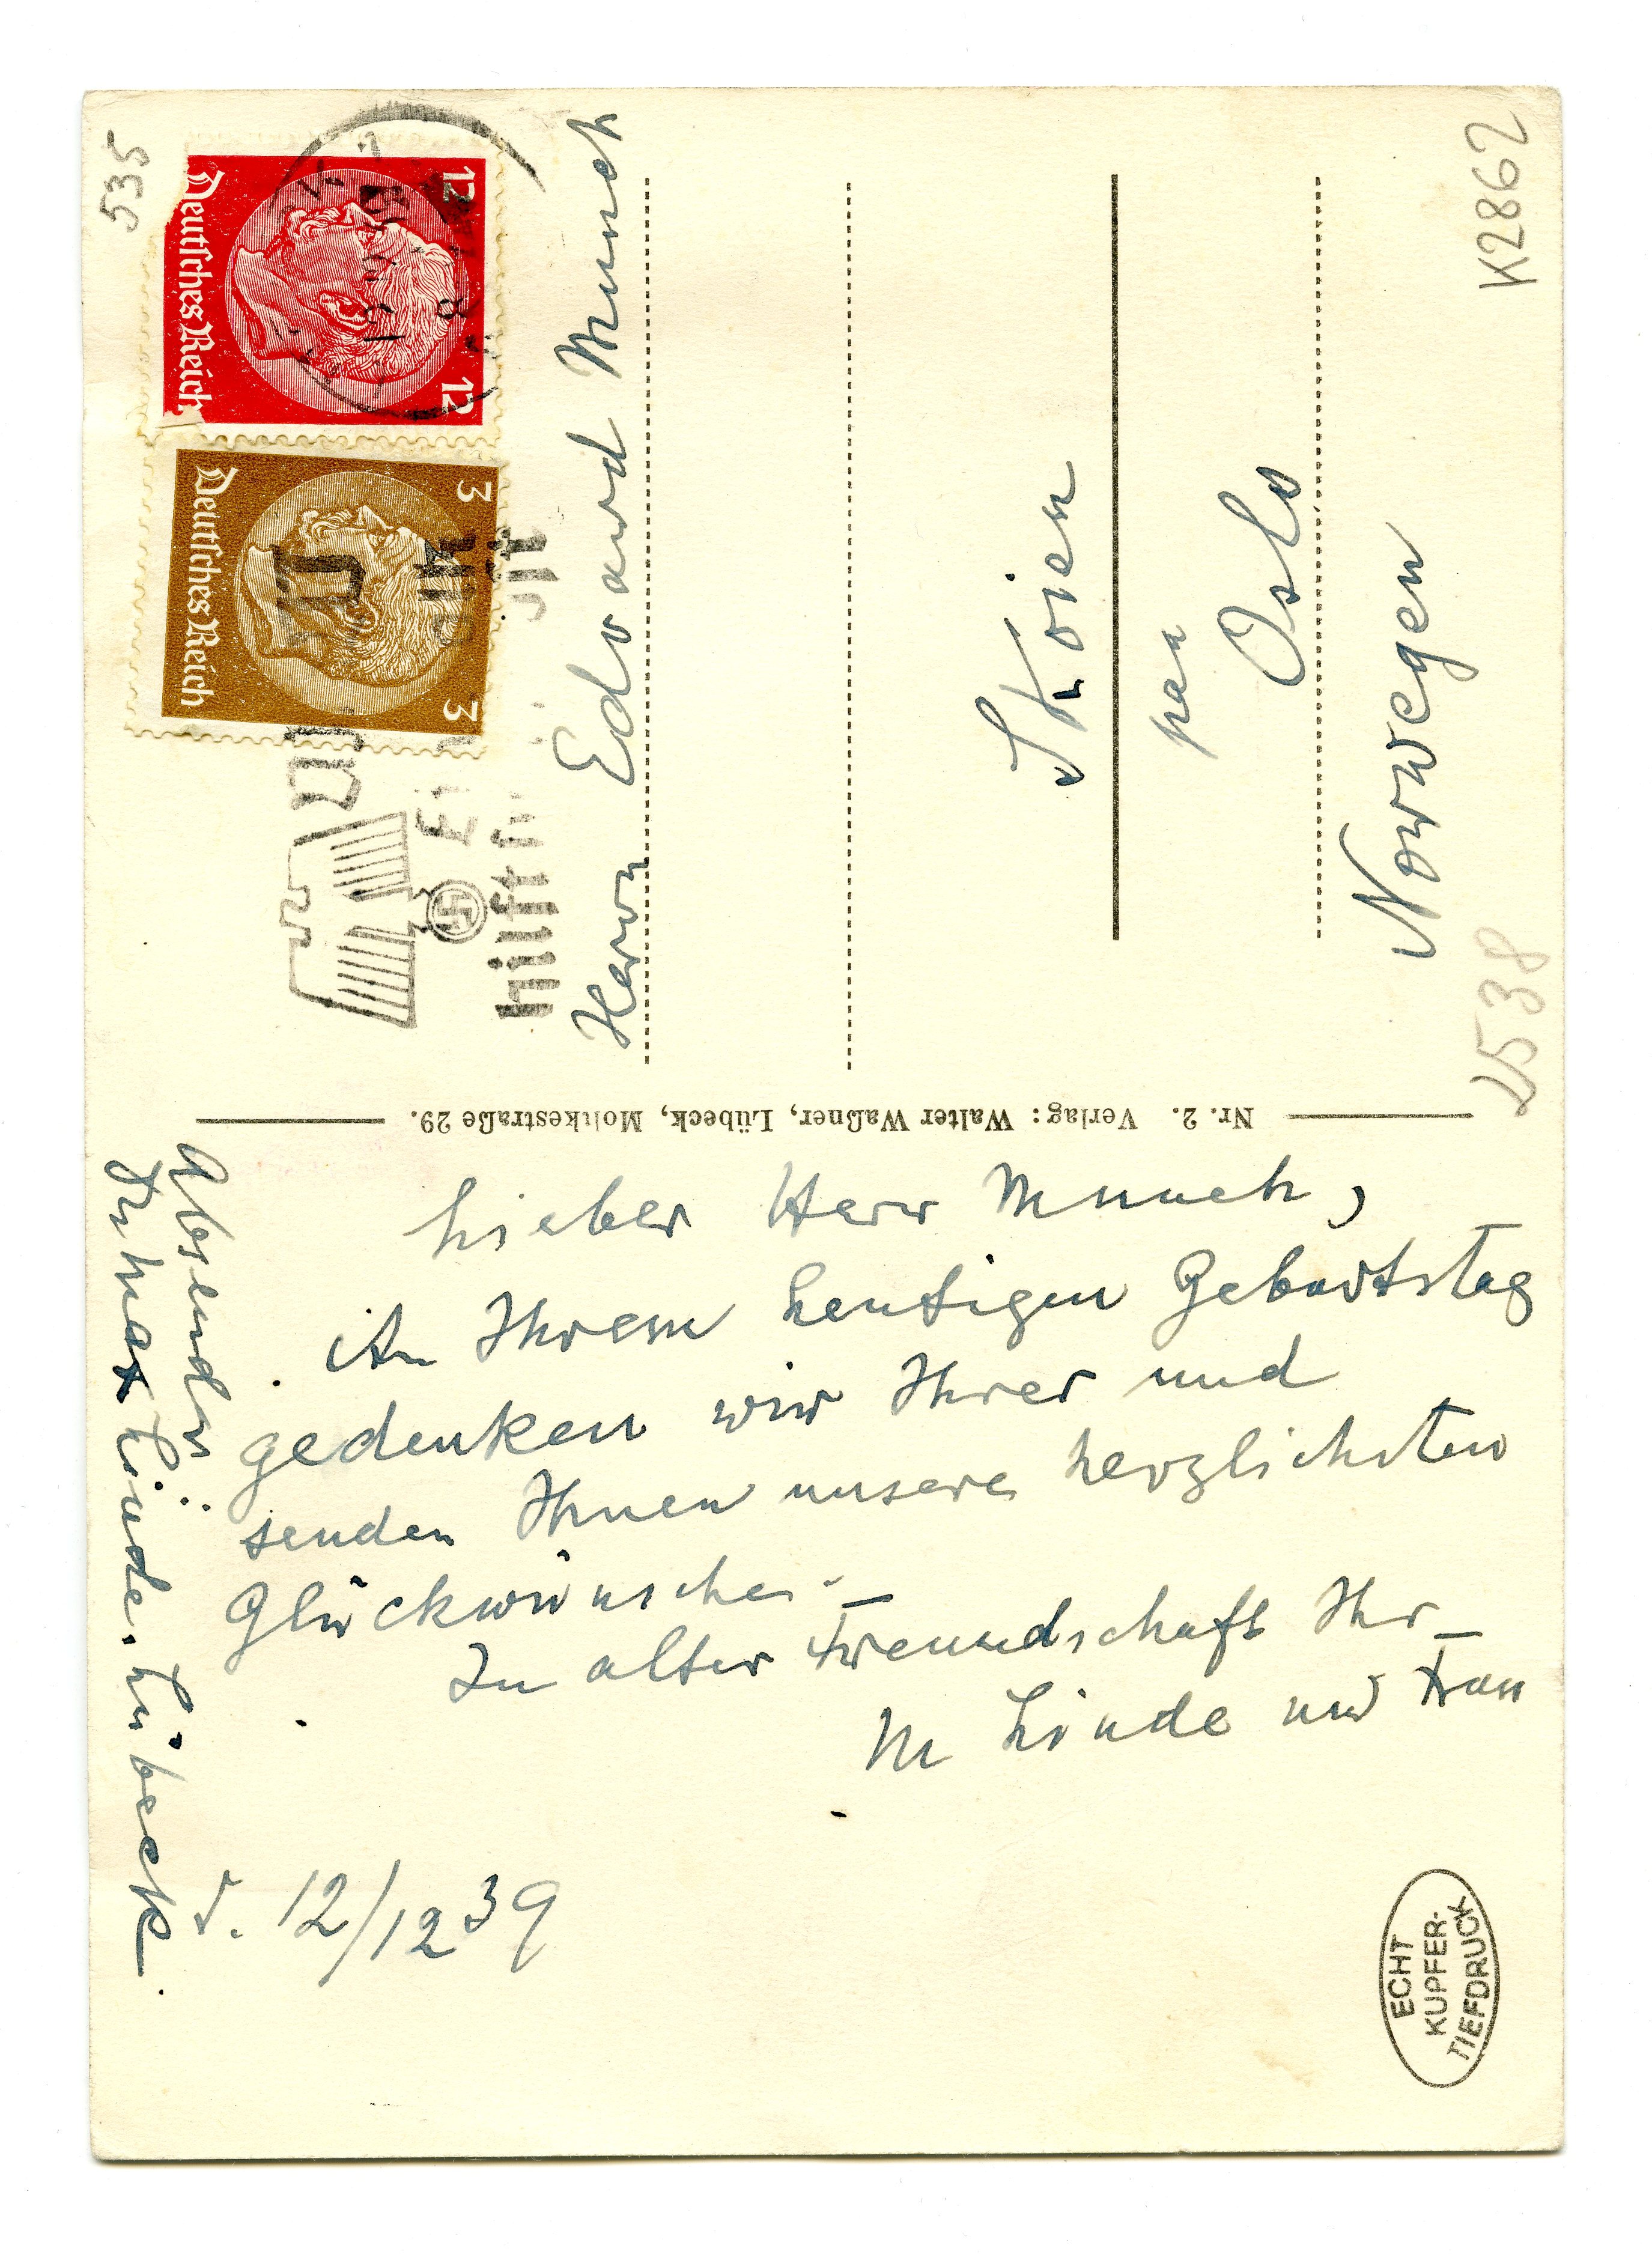 Lieber Herr Munch,
An Ihrem heutigen Geburtstag
gedenken wir Ihrer und
senden Ihnen unsere herzlichsten
Glückwünsche. –
In alter Freundschaft Ihr –
M Linde und Frau
d. 12/12 39
Absender:
Dr Max Linde. Lübeck.
Nr. 2. Verlag: Walter Waßner, Lübeck, Moltkestraße 29.
Herrn Edvard Munch
Skoien
pan
Oslo
Norwegen
535
K2862
2538
Deutsches Reich
12 12
Deutsches Reich
3 3
hilft
mit
ECHT
KUPFER-
TIEFDRUCK